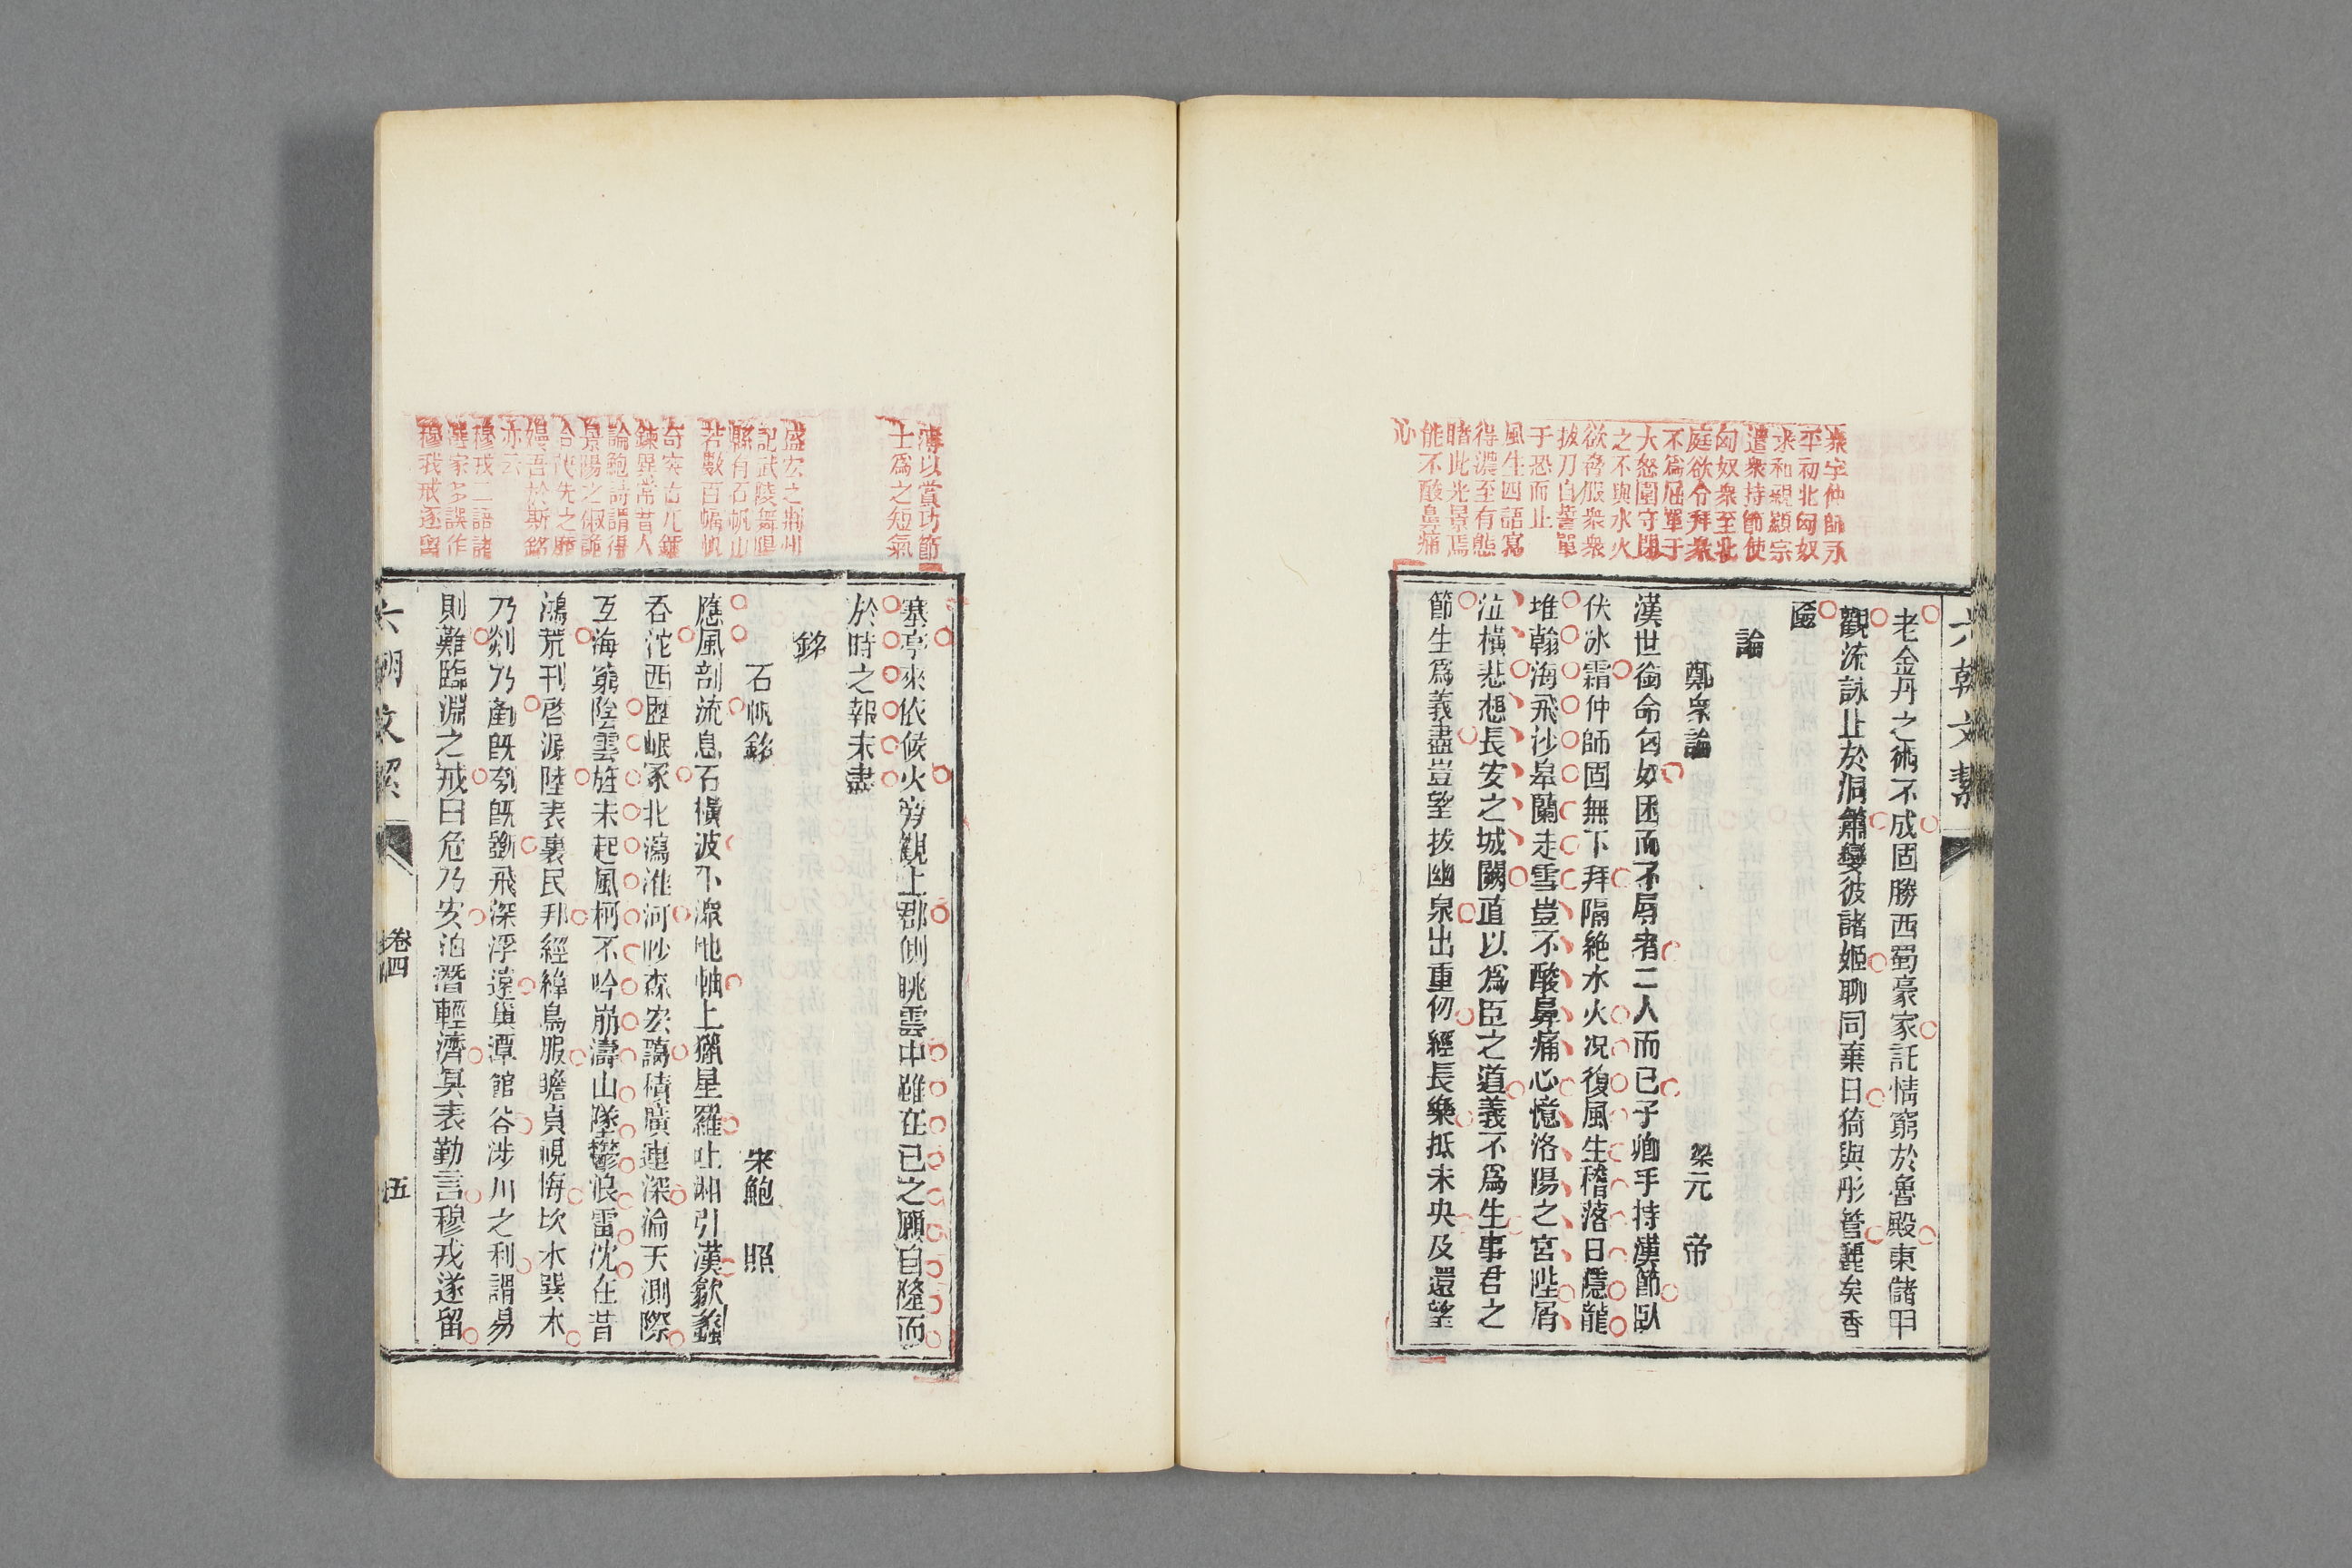 衆字仲師永
平初北匈奴
求和親顯宗
遣衆持節使
匈奴衆至北
庭欲令拜衆
不爲屈單于
大怒圍守閉
之不與水火
欲脅服衆衆
拔刀自誓單
于恐而止
風生四語寫
得濃至有態
睹此光景焉
能不酸鼻痛
心
六朝文絜
老金丹之術不成固勝西蜀豪家託情窮於魯殿東儲甲
觀流詠止於洞簫孌彼諸姬聊同棄日猗與彤管麗矣香
奩
論
鄭衆論 梁元帝
漢世銜命匈奴困而不辱者二人而已子卿手持漢節臥
伏冰霜仲師固無下拜隔絕水火况復風生稽落日隱龍
堆翰海飛沙皋蘭走雪豈不酸鼻痛心憶洛陽之宮陛屑
泣橫悲想長安之城闕直以爲臣之道義不爲生事君之
節生爲義盡豈望拔幽泉出重仞經長樂抵未央及還望
薄以賞功節
士爲之短氣
盛宏之荊州
記武陵舞陽
縣有石帆山
若數百幅帆
奇突古兀錘
鍊異常昔人
論鮑詩謂得
景陽之俶詭
合茂先之靡
嫚吾於斯銘
亦云
穆戎二語諸
選家多誤作
穆我戒遂留
塞亭來依候火旁觀上郡側眺雲中雖在已之願自隆而
於時之報未盡
銘
石帆銘 宋鮑照
應風剖流息石橫波下潨地軸上獵星羅吐湘引漢歙蠡
吞沱西歷岷冢北瀉淮河眇森宏藹積廣連深淪天測際
亙海窮陰雲旌未起風柯不吟崩濤山墜鬱浪雷沈在昔
鴻荒刊啓源陸表裏民邦經緯鳥服瞻貞視悔坎水巽木
乃剡乃鏟既刳既斲飛深浮遠巢潭館谷涉川之利謂易
則難臨淵之戒曰危乃安泊潛輕濟冥表勤言穆戎遂留
六朝文絜
卷四
五